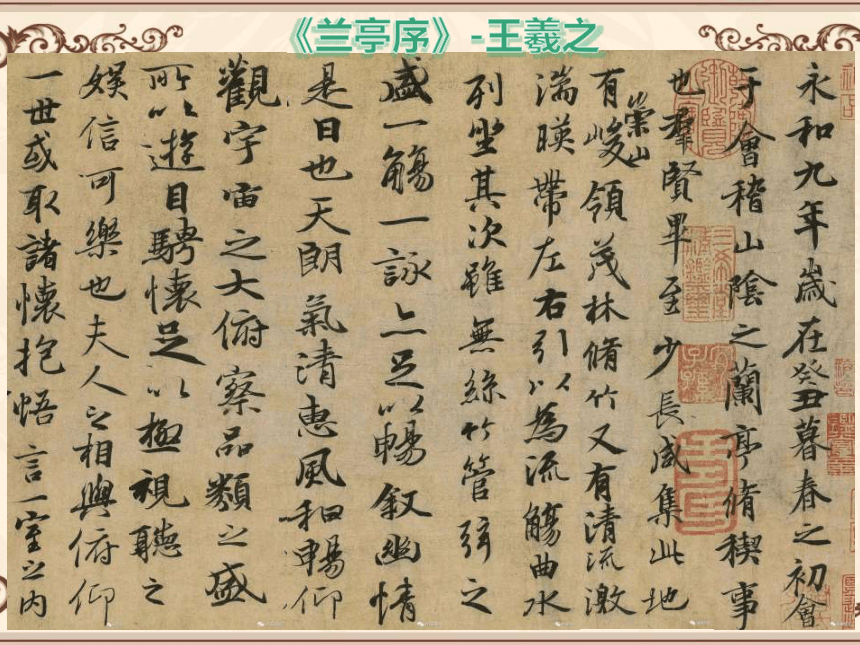 《兰亭序》-王羲之
永和九年歲在癸丑暮春之初會
于會稽山陰之蘭亭脩稧事
也羣賢畢至少長咸集此地
有崇山峻領茂林脩竹又有清流激
湍暎帶左右引以為流觴曲水
列坐其次雖無絲竹管弦之
盛一觴一詠亦足以暢敘幽情
是日也天朗氣清惠風和暢仰
觀宇宙之大俯察品類之盛
所以遊目騁懷足以極視聽之
娛信可樂也夫人之相與俯仰
一世或取諸懷抱悟言一室之內